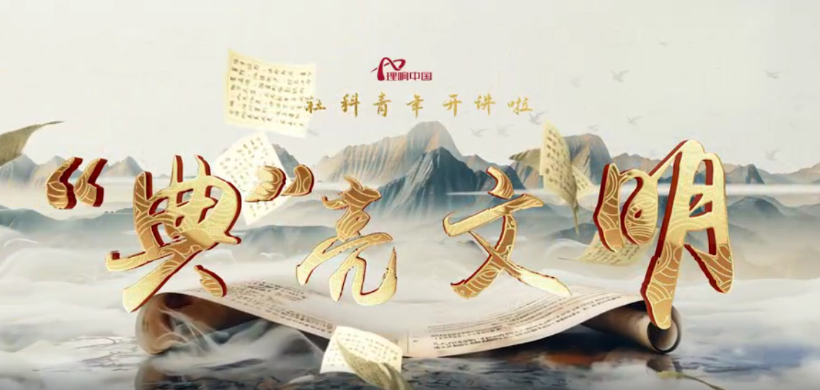 理响中国
社科青年开讲啦
“典”亮文明